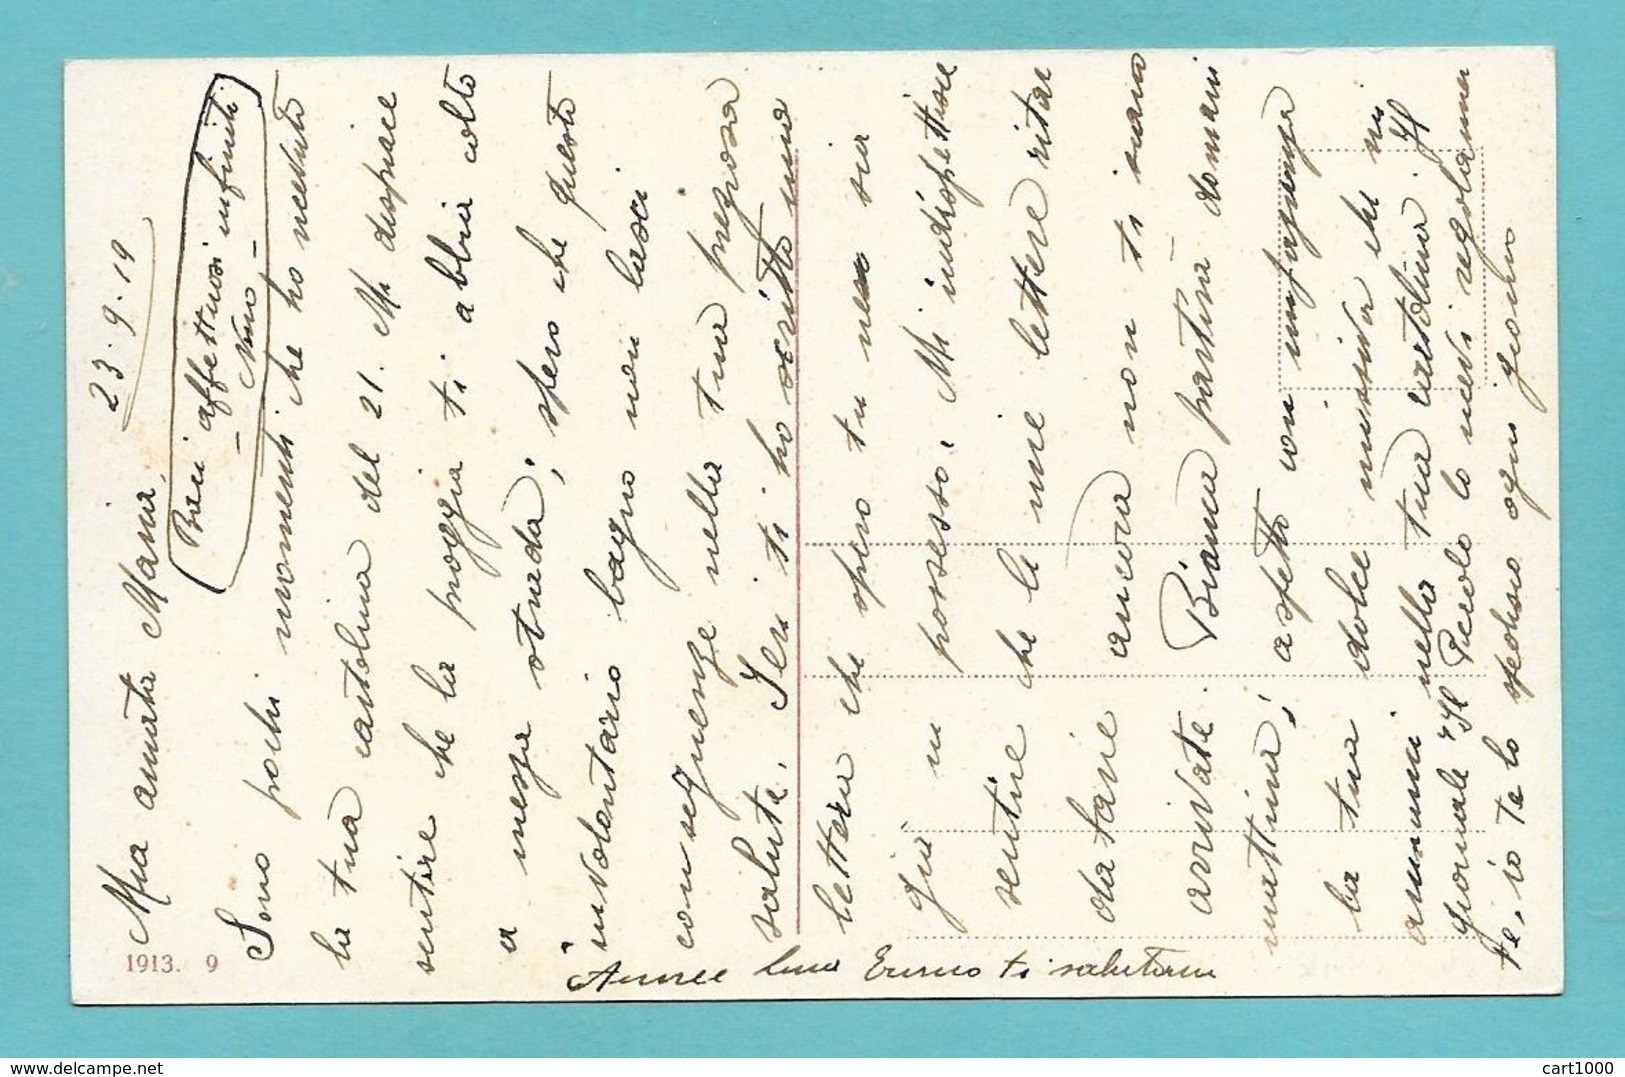 23.9.19
Mia amata Maria,
Baci affettuosi infiniti
- Nino -
Sono pochi momenti che ho ricevuto
la tua cartolina del 21. Mi dispiace
sentire che la pioggia ti abbia colto
a mezza strada, spero che questo
involontario bagno non lasci
conseguenze nella tua preziosa
salute. Ieri ti ho scritto una
lettera che spero tu ne sia
già in possesso. Mi indispettisce
sentire che le mie lettere ritar
datarie ancora non ti siano
arrivate. Bianca partirà domani
mattina, aspetto con
la tua dolce missiva che mi
nella tua cartolina. Il
giornale "Il Piccolo lo ricevi regolarmen
te, io te lo spedisco ogni giorno
ti salutano
1913. 9
cart1000
www.delcampe.net